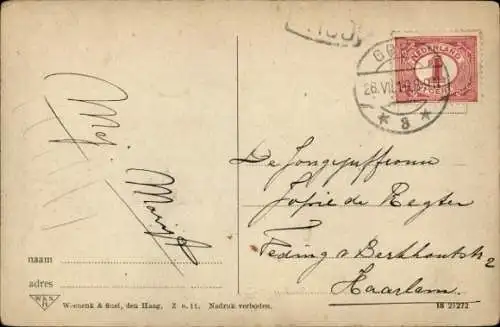 NEDERLAND
1
26.VII.1
* 3 *
Mej. Marist
De Jongejuffrouw
Sofie de Regter
Teding v Berkhoutstr 2
Haarlem.
naam
adres
W&S
H
Weenenk & Snel, den Haag. Z o. 11. Nadruk verboden.
18 21272